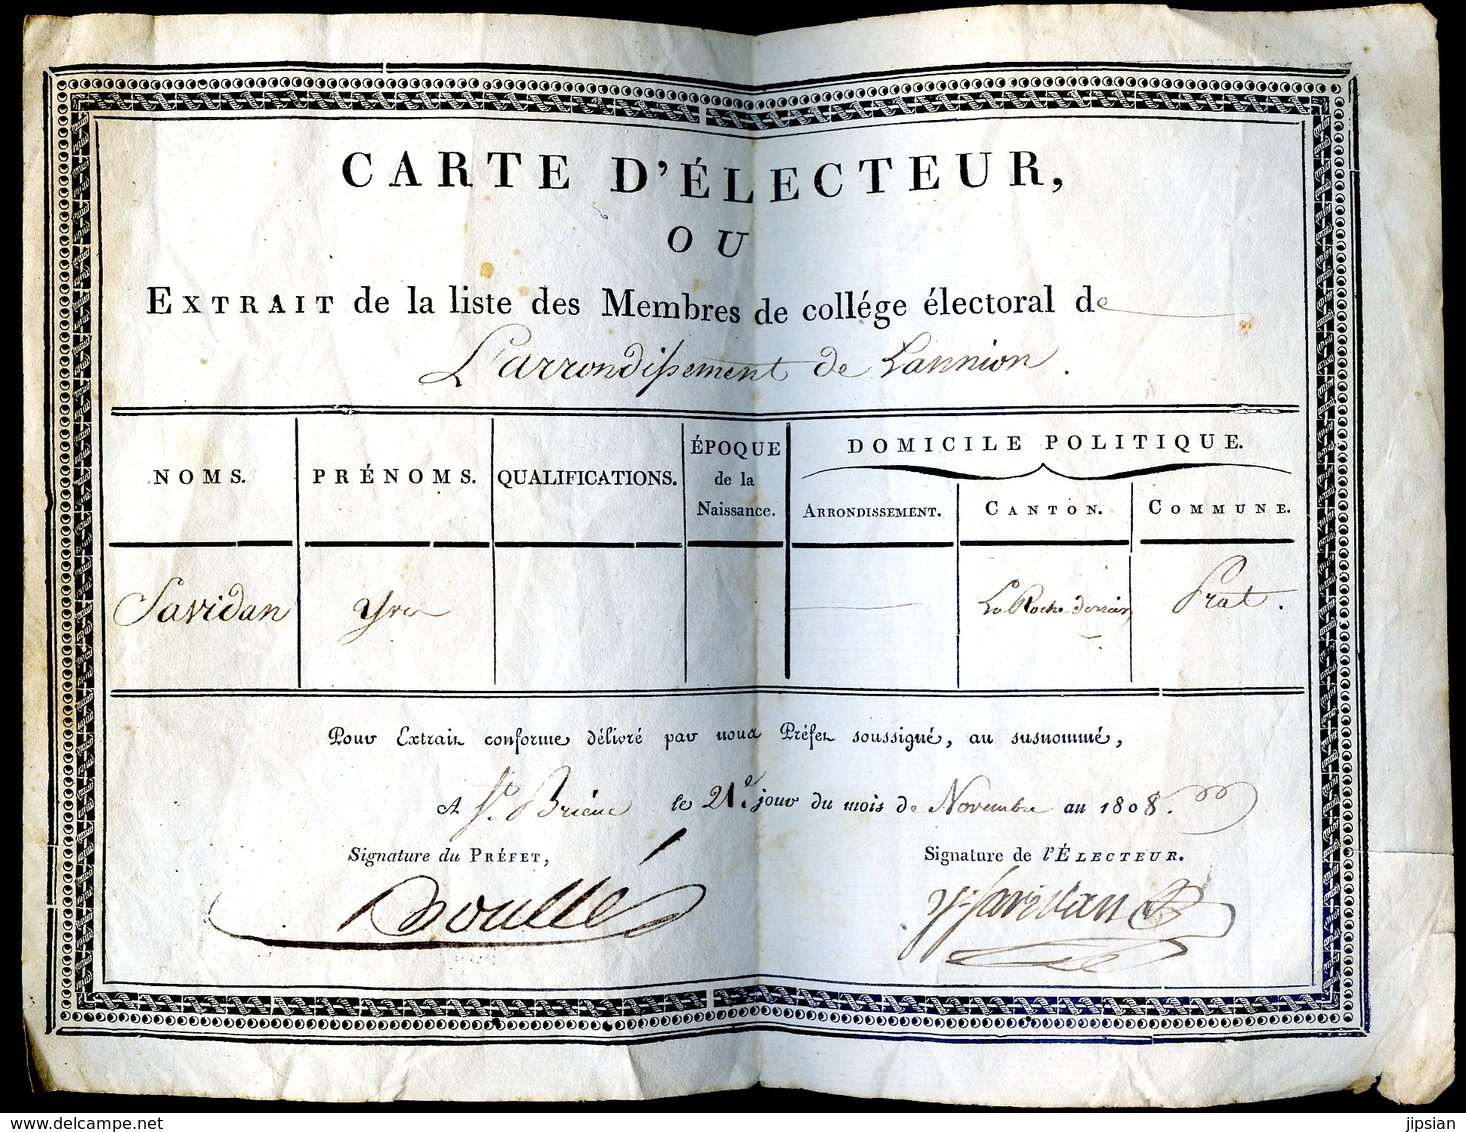 CARTE D'ÉLECTEUR,
OU
EXTRAIT de la liste des Membres de collége électoral de
L'arrondissement de Lannion.
NOMS. PRÉNOMS. QUALIFICATIONS. ÉPOQUE de la Naissance. DOMICILE POLITIQUE.
ARRONDISSEMENT. CANTON. COMMUNE.
Savidan Yves La Roche derrien Prat.
Pour Extrait conforme délivré par nous Préfet soussigné, au susnommé,
A St. Brieuc le 21e. jour du mois de Novembre an 1808.
Signature du PRÉFET, Signature de l'ÉLECTEUR.
Boullé Y. Savidan
delcampe.net
jipsian